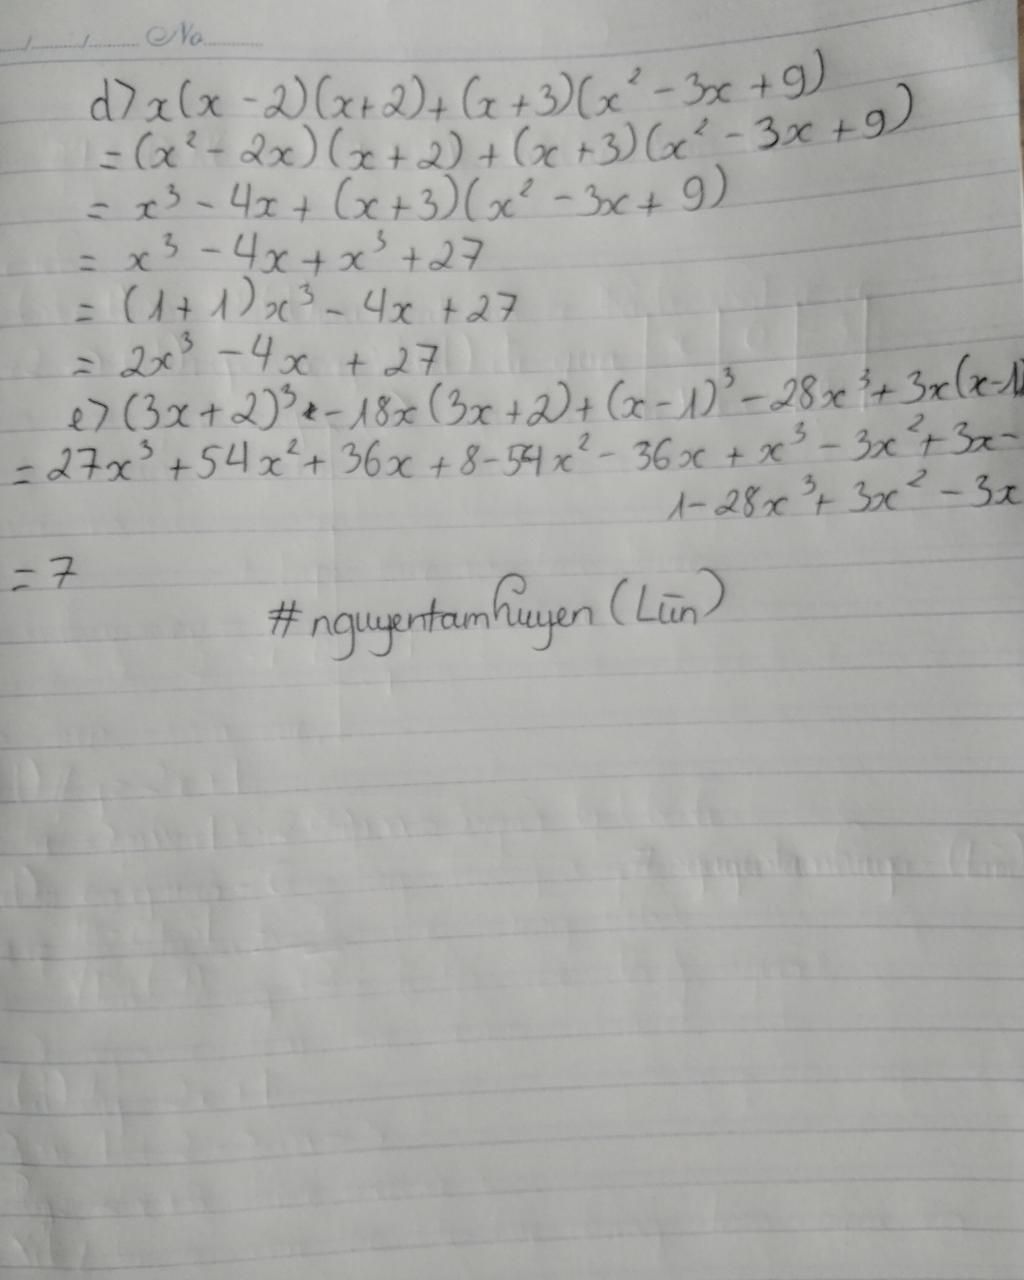 No
d) x(x - 2)(x + 2) + (x + 3)(x² - 3x + 9)
= (x² - 2x)(x + 2) + (x + 3)(x² - 3x + 9)
= x³ - 4x + (x + 3)(x² - 3x + 9)
= x³ - 4x + x³ + 27
= (1 + 1)x³ - 4x + 27
= 2x³ - 4x + 27
e) (3x + 2)³ - 18x(3x + 2) + (x - 1)³ - 28x³ + 3x(x - 1)
= 27x³ + 54x² + 36x + 8 - 54x² - 36x + x³ - 3x² + 3x -
1 - 28x³ + 3x² - 3x
= 7
#nguyentamhuyen (Lūn)